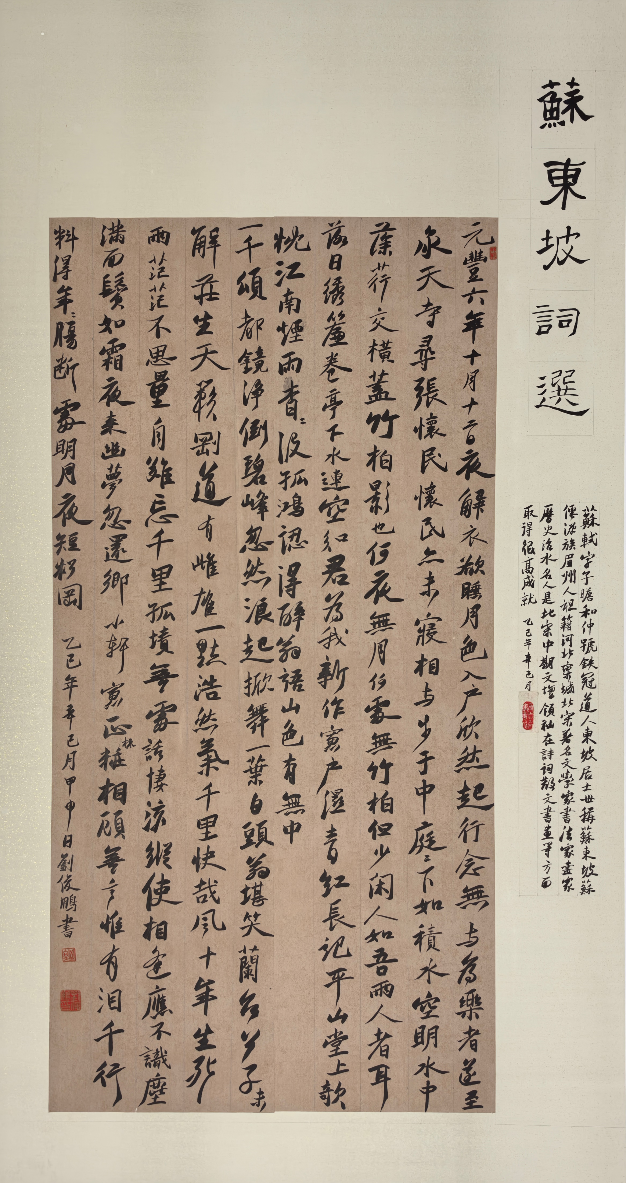 蘇東坡詞選
蘇軾字子瞻和仲號鉄冠道人東坡居士世稱蘇東坡蘇
僊海族眉州人祖籍河北欒城北宋著名文學家書法家畫家
歷史治水名人是北宋中期文壇領袖在詩詞散文書畫等方面
取得很高成就 乙巳年辛巳月
元豐六年十月十二日夜解衣欲睡月色入户欣然起行念無与為樂者遂至
承天寺尋張懷民懷民亦未寢相与步于中庭〻下如積水空明水中
藻荇交橫蓋竹柏影也何夜無月何處無竹柏但少闲人如吾兩人者耳
落日绣簾卷亭下水連空知君為我新作窗户濕青紅長記平山堂上欹
枕江南煙雨杳〻没孤鴻認得醉翁語山色有無中
一千頃都鏡淨倒碧峰忽然浪起掀舞一葉白頭翁堪笑蘭台公子未
解莊生天籟剛道有雌雄一點浩然氣千里快哉風 十年生死
兩茫茫不思量自難忘千里孤墳無處話悽涼縱使相逢應不識塵
滿面鬢如霜夜來幽夢忽還鄉小軒窗正梳粧相顧無言惟有泪千行
料得年〻腸斷處明月夜短松岡 乙巳年辛巳月甲申日劉俊鵬書